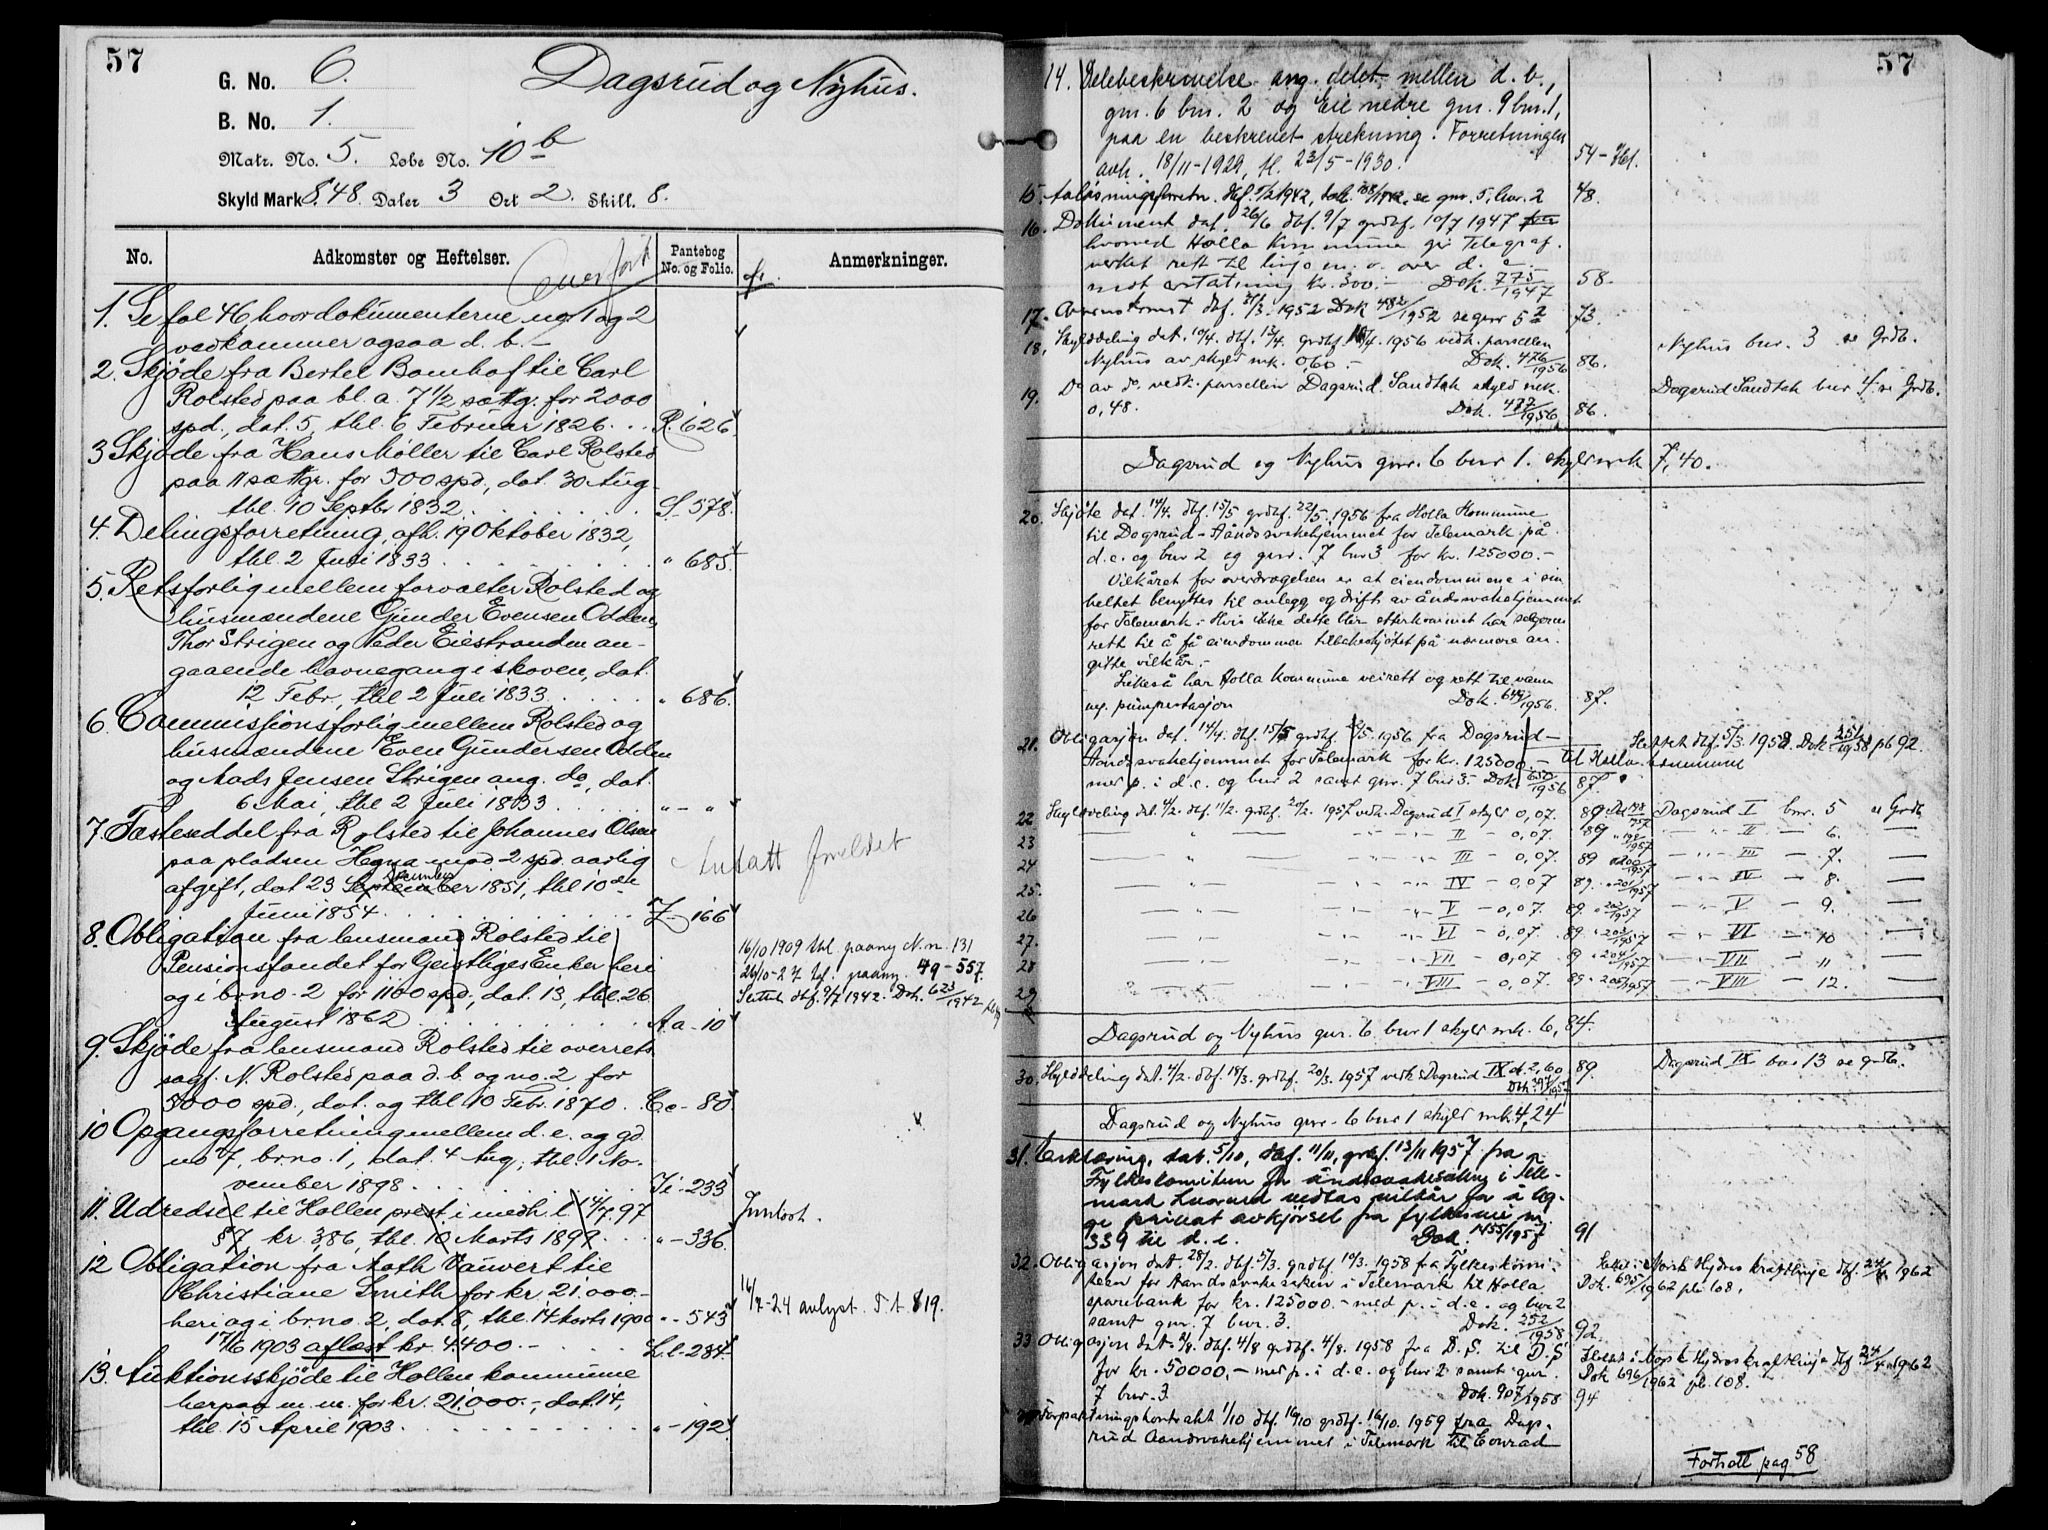 57
G. No. 6.
Dagsrud og Nyhus.
B. No. 1.
Matr. No. 5. Løbe No. 10 b
Skyld Mark 8.48. Daler 3 Ort 2. Skill. 8.
No.
Adkomster og Heftelser.
Overført
Pantebog
No. og Folio.
Anmerkninger.
1. Se fol 46 hvor dokumenterne no. 1 og 2
vedkommer ogsaa d. b. —
2. Skjøde fra Bertel Bomhof til Carl
Rolsted paa bl. a. 7 1/2 sættg. for 2000
spd., dat. 5, thl. 6 Februar 1826. . . R. 626.
3 Skjøde fra Hans Møller til Carl Rolsted
paa 11 sættgr. for 500 spd., dat. 30 Aug.
thl. 10 Septbr 1832 . . . . S. 578.
4. Delingsforretning, afh. 19 Oktober 1832,
thl. 2 Juli 1833 . . . . " 685.
5. Retsforlig mellem forvalter Rolsted og
husmændene Gunder Evensen Odden,
Thor Strigen og Peder Eiestranden an-
gaaende havnegang i skoven, dat.
12 Febr., thl. 2 Juli 1833 . . . " 686.
6 Commissionsforlig mellem Rolsted og
husmændene Even Gundersen Odden
og Mads Jensen Strigen ang. do, dat.
6 Mai, thl. 2 Juli 1833 . . . " - "
7. Fæsteseddel fra Rolsted til Johannes Olsen
paa pladsen Hegna mod 2 spd. aarlig
afgift, dat 23 September December 1851, thl 10de
Juni 1854 . . . . Z - 166
Antatt foreldet
8. Obligation fra lensmand Rolsted til
Pensionsfondet for Geistliges Enker heri
og i brno. 2 for 1100 spd., dat. 13, thl. 26
August 1862 . . . . Aa - 10
16/10 1909 thl. paany N.m. 131
26/10-27 thl. paany. 49-557.
Slettet dbf. 9/7 1942. Dok. 623/1942
9. Skjøde fra lensmand Rolsted til overrets-
sagf. N. Rolsted paa d. b. og no. 2 for
5000 spd., dat. og thl 10 Febr. 1870. . Cc - 80
10 Opgangsforretning mellem d. e. og gd.
no 7, br.no. 1, dat. 4 Aug., thl. 1 No-
vember 1898 . . . . Ii - 233
11. Udredsel til Hollen prest i medh. l. 14/7 97
§ 7 kr. 3,86, thl. 10 Marts 1899. . . " - 336.
Innløst.
12 Obligation fra Math Vauvert til
Christiane Smith for kr. 21.000.-
heri og i brno. 2, dat. 8, thl. 14 Marts 1900 " - 543
17/6 1903 aflæst kr. 4400. - . . . Ll - 284.
16/7-24 avlyst. T. t. 819.
13. Auktionsskjøde til Hollen kommune
herpaa m. m. for kr. 21.000.-, dat. 14,
thl. 15 April 1903. . . . " - 192
57
14. Delebeskrivelse ang. delet mellem d. b.,
gnr. 6 bnr. 2 og Eie nedre gnr. 9 bnr. 1,
paa en beskrevet strekning. Forretningen
avh. 18/11-1929, tl. 23/5-1930. 54 - 761.
15. Avløsningsforretn. dbf. 9/2 1942, dok. 108/1942, se gnr. 5, bnr. 2 48.
16. Dokument dat. 26/6 dbf. 9/7 grdbf. 10/7 1947
hvorved Holla kommune gir Telegraf-
verket rett til linje m. v. over d. e.
mot erstatning kr. 300.- Dok. 775/1947 58.
17. Overenskomst dbf. 31/3. 1952 Dok 482/1952 se gnr 5 2 73.
18. Skylddeling dat. 10/4. dbf. 13/4. grdbf. 16/4. 1956 vedk. parsellen
Nyhus av skyld mk. 0,60.- Dok. 476/1956 86.
Nyhus bnr. 3 se Grdb.
19. Do av do. vedk. parsellen Dagsrud Sandtak skyld mk.
0,48. Dok. 477/1956 86.
Dagsrud Sandtak bnr 4. se Grdb.
Dagsrud og Nyhus gnr. 6 bnr 1. skyld mk 7,40.
20. Skjøte dat. 14/4. dbf. 15/5 grdbf. 22/5. 1956 fra Holla kommune
til Dagsrud - Åndssvakehjemmet for Telemark på
d. e. og bnr 2 og gnr. 7 bnr 3 for kr. 125000.-
Vilkåret for overdragelsen er at eiendommene i sin
helhet benyttes til anlegg og drift av åndssvakehjemmet
for Telemark.- Hvis ikke dette blir etterkommet har selgeren
rett til å få eiendommen tilbakeskjøtet på nærmere an-
gitte vilkår.-
Likeså har Holla kommune veirett og rett til vann
og pumpestasjon Dok. 649/1956. 87.
21. Obligasjon dat. 14/4. dbf. 15/5 grdbf. 22/5. 1956 fra Dagsrud -
Åndssvakehjemmet for Telemark for kr. 125000.- til Holla kommune
med p. i d. e. og bnr 2 samt gnr. 7 bnr 3.- Dok 650/1956 87.
Slettet dbf. 5/3. 1958. Dok 251/1958 pb 92.
22 Skylddeling dat. 4/2. dbf. 11/2. grdbf. 20/2. 1957 vedk. Dagsrud I skyld 0,07. 89 Dok 198/1957 Dagsrud I bnr. 5 se Grdb
23 — " — II - 0,07. 89 " 199/1957 — " — II — 6. —
24 — " — III - 0,07. 89 " 200/1957 — " — III — 7. —
25. — " — IV - 0,07 89. " 201/1957 — " — IV — 8. —
26 — " — V - 0,07. 89 " 202/1957 — " — V — 9. —
27. — " — VI - 0,07. 89. " 203/1957 — " — VI — 10 —
28 — " — VII - 0,07 89 " 204/1957 — " — VII — 11 —
29 — " — VIII - 0,07. 89 " 205/1957 — " — VIII — 12. —
Dagsrud og Nyhus gnr. 6 bnr 1 skyld mk. 6,84.
30. Skylddeling dat. 4/2. dbf. 18/3. grdbf. 20/3. 1957 vedk. Dagsrud IX d. 2,60 89.
Dok. 394/1957
Dagsrud IX bnr 13 se grdb.
Dagsrud og Nyhus gnr. 6 bnr 1 skyld mk. 4,24
31. Erklæring, dat. 5/10, dbf. 11/11, grdbf. 13/11 1957 fra
Fylkeskomiteen for åndssvakesaken i Tele-
mark hvorved vedtas vilkår for å leg-
ge privat avkjørsel fra fylkesvei nr.
339 til d. e. Dok. 1455/1957 91
32. Obligasjon dat. 28/2. dbf. 5/3. grdbf 10/3. 1958 fra Fylkeskomi-
teen for Åndssvakesaken i Telemark til Holla
sparebank for kr. 125000.- med p. i d. e. og bnr 2
samt gnr. 7 bnr. 3. Dok. 252/1958 92.
Slettet i Norsk Hydros kraftlinje dbf. 24/4 1962
Dok. 695/1962 pb. 108.
33 Obligasjon dat. 2/8. dbf. 4/8 grdbf. 4/8. 1958 fra D. S. til D. S
for kr. 50000.- med p. i d. e. og bnr 2 samt gnr.
7 bnr. 3 Dok. 907/1958 94
Slettet i Norsk Hydros kraftlinje dbf. 24/4 1962
Dok 696/1962 pb. 108.
34 Forpaktningskontrakt 1/10 dbf. 16/10 grdbf. 16/10. 1959 fra Dags-
rud Åandssvakehjemmet i Telemark til Conrad
Fortsatt pag 58